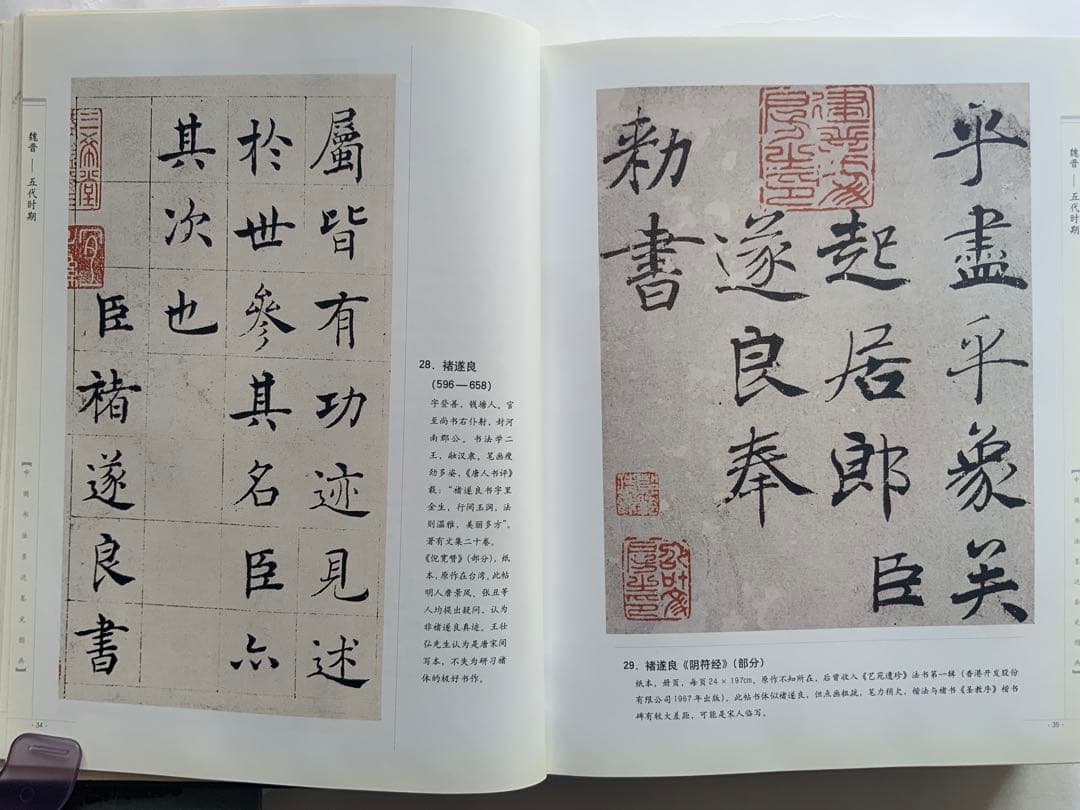 魏晋——五代时期
屬皆有功迹見述
於世參其名臣亦
其次也
臣褚遂良書
三希堂
28. 褚遂良
(596—658)
字登善，钱塘人。官
至尚书右仆射，封河
南郡公。书法学二
王，融汉隶，笔画瘦
劲多姿，《唐人书评》
载：“褚遂良书字里
金生，行间玉润，法
则温雅，美丽多方”。
著有文集二十卷。
《倪宽赞》(部分)，纸
本，原作在台湾。此帖
明人詹景凤、张丑等
人均提出疑问，认为
非褚遂良真迹。王壮
弘先生认为是唐宋间
写本，不失为研习褚
体的极好书作。
·34·
乎盡乎象矣
起居郎臣
遂良奉
勑書
29. 褚遂良《阴符经》(部分)
纸本，册页，每页24×197cm，原作不知所在，后曾收入《艺苑遗珍》法书第一辑(香港开发股份
有限公司1967年出版)。此帖书体似褚遂良，但点画粗疏，笔力稍欠，楷法与褚书《圣教序》楷书
碑有较大差距，可能是宋人临写。
魏晋——五代时期
·35·